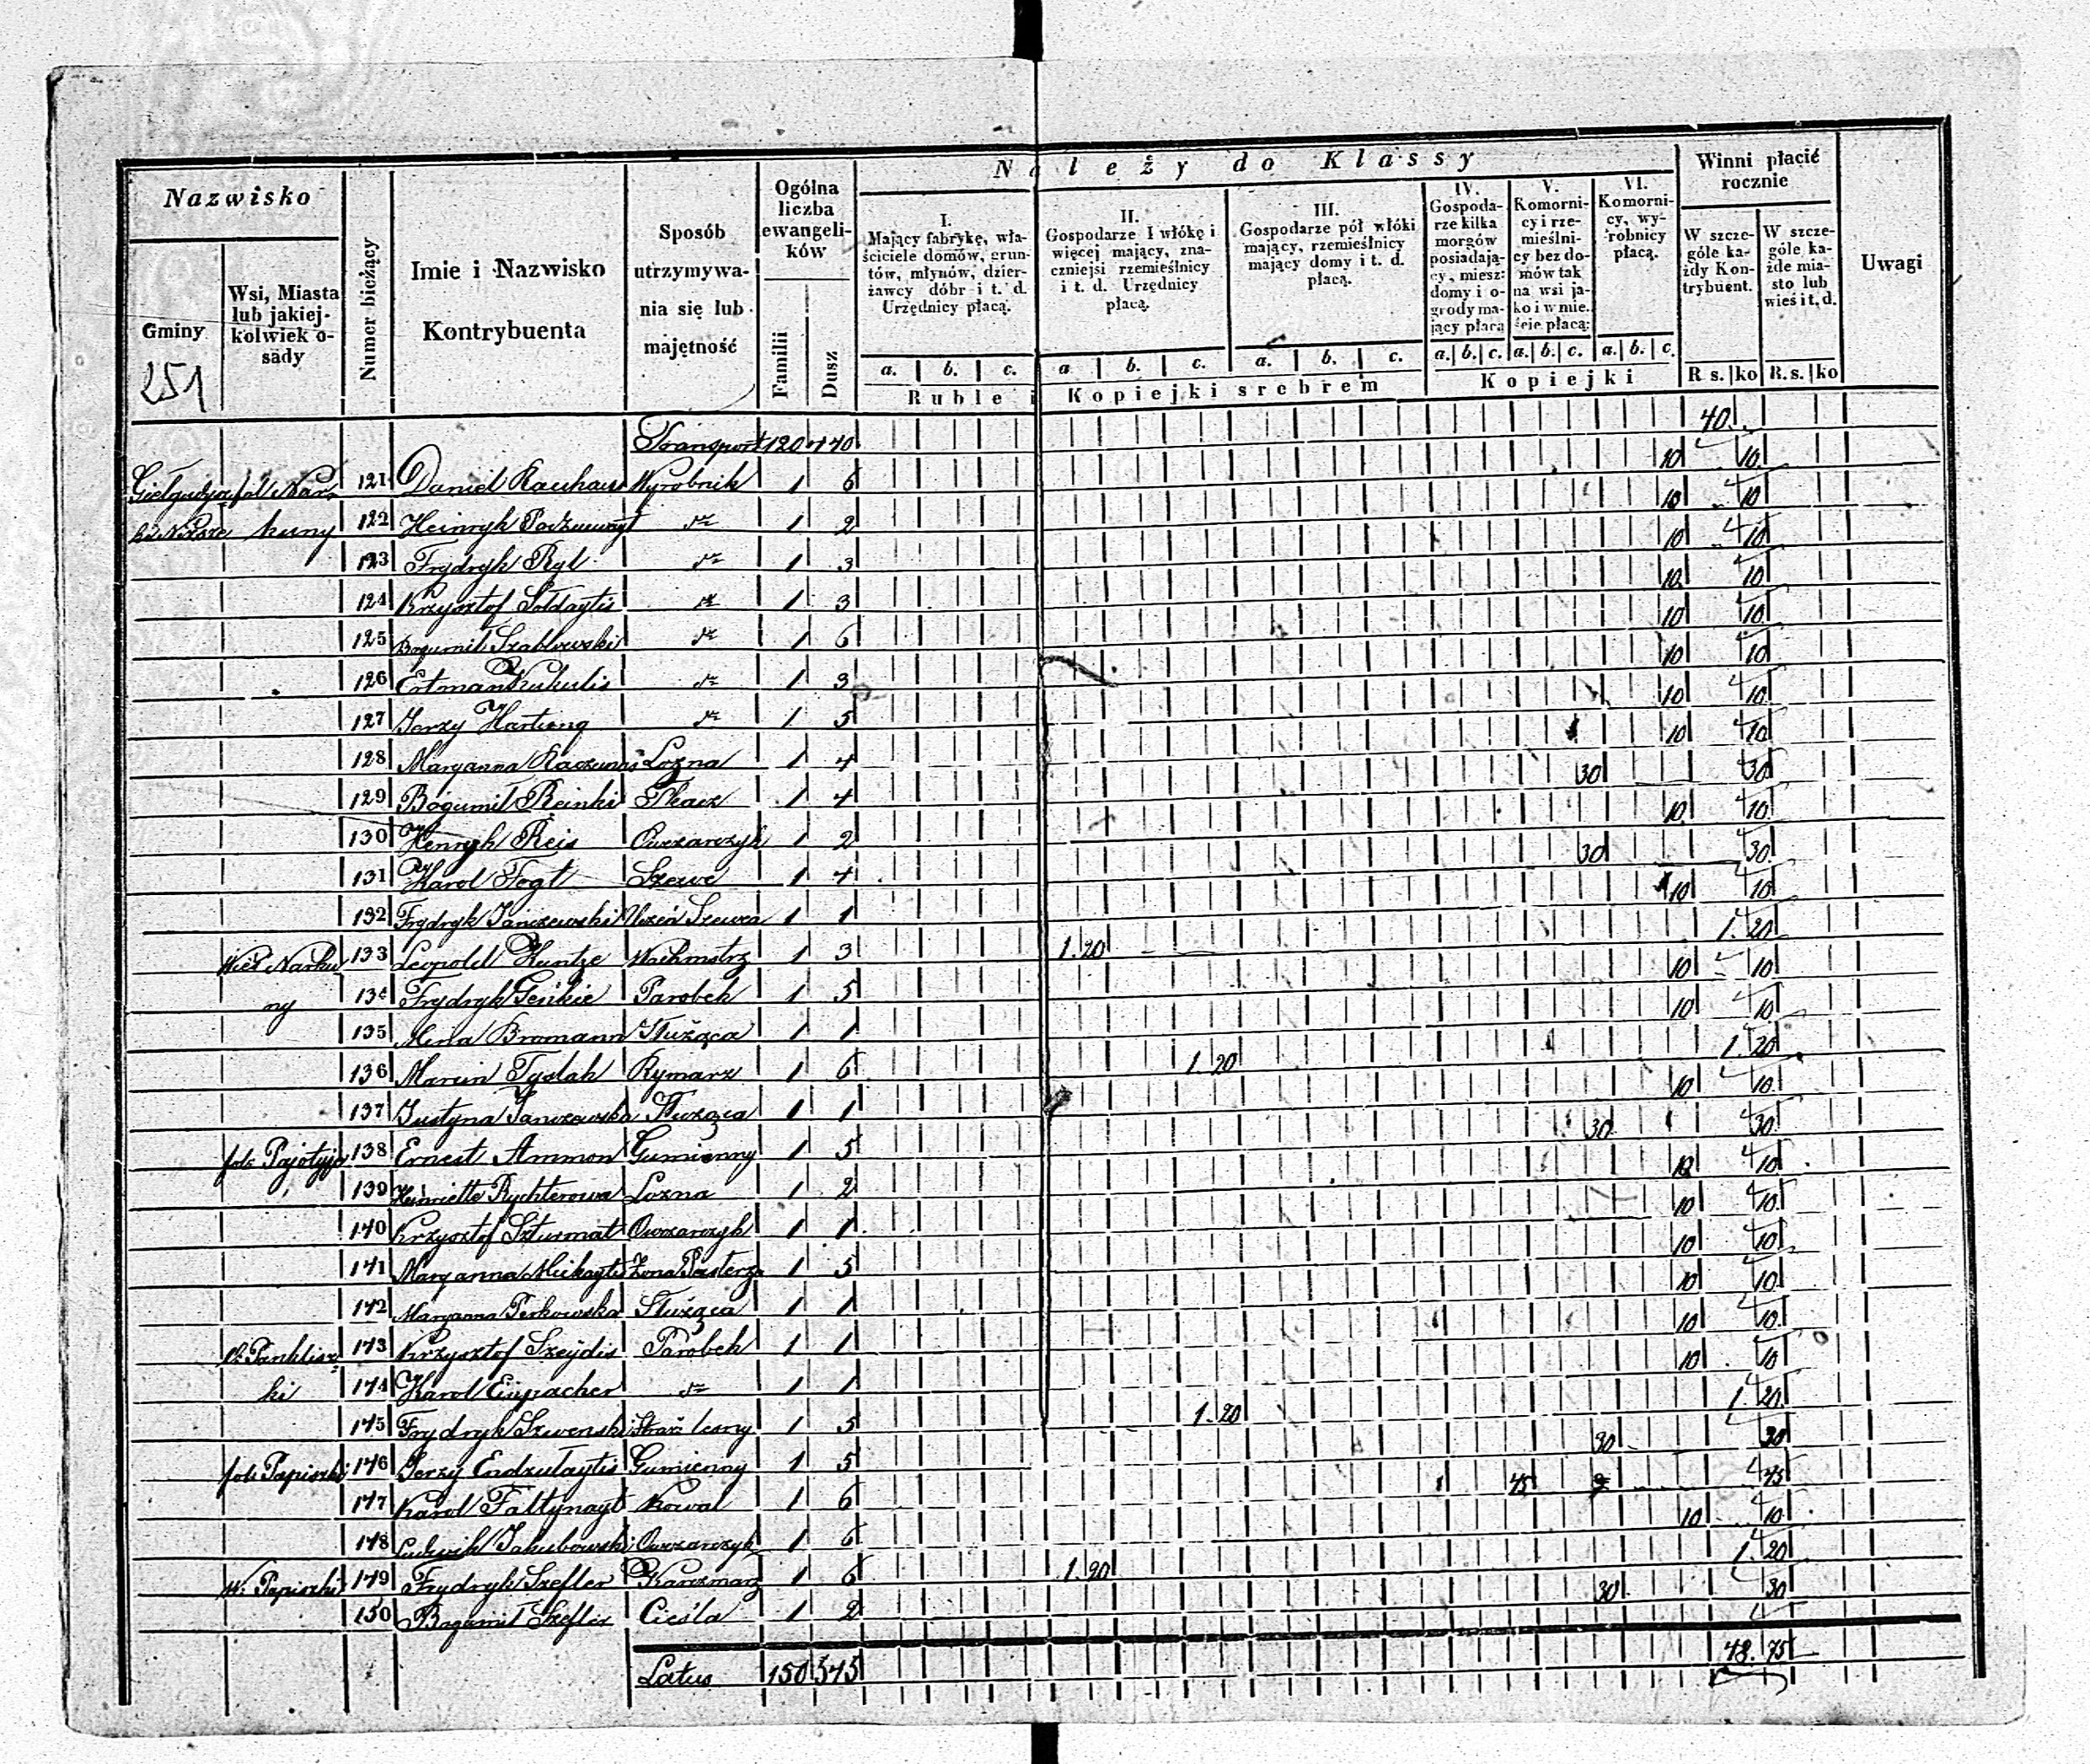 Należy do Klassy
Nazwisko
Gminy
Wsi, Miasta lub jakiejkolwiek osady
Numer bieżący
Imie i Nazwisko Kontrybuenta
Sposób utrzymywania się lub majętność
Ogólna liczba ewangelików
Familii
Dusz
I. Mający fabrykę, właściciele domów, gruntów, młynów, dzierżawcy dóbr i t. d. Urzędnicy płacą.
II. Gospodarze I włókę i więcej mający, znaczniejsi rzemieślnicy i t. d. Urzędnicy płacą.
III. Gospodarze pół włóki mający, rzemieślnicy mający domy i t. d. płacą.
IV. Gospodarze kilka morgów posiadający, miesz: domy i ogrody mający płacą
V. Komornicy i rzemieślnicy bez domów tak na wsi jako i w mieście płacą:
VI. Komornicy, wyrobnicy płacą.
Winni płacić rocznie
W szczególe każdy Kontrybuent.
W szczególe każde miasto lub wieś i t. d.
Uwagi
a. b. c. a. b. c. a. b. c. a. b. c. a. b. c. a. b. c.
Ruble i Kopiejki srebrem
Kopiejki
R s. ko R. s. ko
251
Transport 120 470 40
121 Daniel Rauhaus Wyrobnik 1 6 10 10
kuny 122 Heinryk dto 1 2 10 10
123 Frydryk Ryl dto 1 3 10 10
124 Krzysztof Sołdaytis dto 1 3 10 10
125 Bogumił Szablowski dto 1 6 10 10
126 Ertman Kukulis dto 1 3 10 10
127 Jerzy Hartung dto 1 5 10 10
128 Maryanna Raczunas Lozna 1 4 10 10
129 Bogumił Reinki Tkacz 1 4 30 30
130 Henryk Reis Owczarczyk 1 2 10 10
131 Karol Fogt Szewc 1 4 30 30
132 Frydryk Janczewski Uczeń Szewca 1 1 10 10
Wieś Narku 133 Leopold Kuntze Wachmstrz 1 3 1.20 1.20
ny 134 Frydryk Geńkie Parobek 1 5 10 10
135 Bromann Służąca 1 1 10 10
136 Marcin Tyslak Rymarz 1 6 1.20 1.20
137 Justyna Janczewska Służąca 1 1 10 10
fol: 138 Ernest Ammon Gumienny 1 5 30 30
139 Heinriette Rychterowa Lozna 1 2 10 10
140 Krzysztof Szturmat Owczarczyk 1 1 10 10
141 Maryanna Mickaytis Żona Pasterza 1 5 10 10
142 Maryanna Perkowska Służąca 1 1 10 10
143 Krzysztof Szeydis Parobek 1 1 10 10
ki 144 Karol Eypacher dto 1 1 10 10
145 Frydryk Szwenski Straż leśny 1 5 1.20 1.20
fol: Papiszki 146 Jerzy Endrułaytis Gumienny 1 5 30 30
147 Karol Faltynayt Kowal 1 6 45 45
148 Ludwik Jakubowski Owczarczyk 1 6 10 10
W: Papiszki 149 Frydryk Szefler Karczmarz 1 6 1.20 1.20
150 Bogumił Szefler Cieśla 1 2 30 30
Latus 150 575 48.75